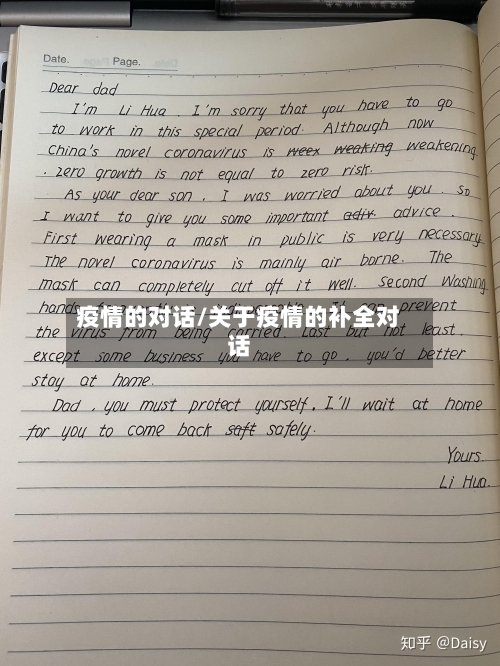 Date. Page.
Dear dad
I'm Li Hua. I'm sorry that you have to go
to work in this special period. Although now
China's novel coronavirus is weex weaking weakening.
. zero growth is not equal to zero risk.
As your dear son, I was worried about you. So
I want to give you some important adiv. advice.
First wearing a mask in public is very necessary
The novel coronavirus is mainly air borne. The
mask can completely cut off it well. Second Washing
hands prevent
疫情的对话/关于疫情的补全对
话
the virus from being carried. Last but not least.
except some business you have to go, you'd better
stay at home.
Dad, you must protect yourself, I'll wait at home
for you to come back saft safely.
Yours.
Li Hua.
知乎 @Daisy